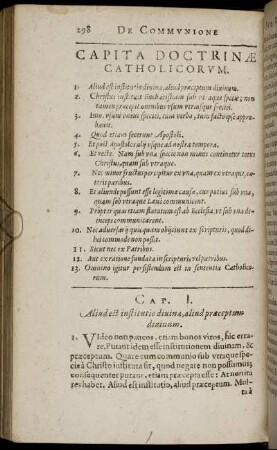 298 DE COMMVNIONE
CAPITA DOCTRINÆ
CATHOLICORVM.
1. Aliud est institutio divina, aliud præceptum divinum.
2. Christus instituit Eucharistiam sub utraque specie; non
tamen præcepit omnibus usum utriusque speciei.
3. Imo usum unius speciei, cum verbo, tum facto ipse appro-
bavit.
4. Quod etiam fecerunt Apostoli.
5. Et post Apostolos alij usque ad nostra tempora.
6. Et recte. Nam sub una specie non minus continetur totus
Christus, quam sub utraque.
7. Nec minor fructus percipitur ex una, quam ex utraque, cæ-
teris paribus.
8. Et aliunde possunt esse legitimæ causæ, cur potius sub una,
quam sub utraque Laici communicent.
9. Propter quas etiam statutum est ab Ecclesia, ut sub una di-
cta specie communicarent.
10. Nec adversarij quicquam objiciunt ex scripturis, quod di-
lui commode non possit.
11. Sicut nec ex Patribus.
12. Aut ex ratione fundata in scripturis vel patribus.
13. Omnino igitur persistendum est in sententia Catholico-
rum.
CAP. I.
Aliud est institutio divina, aliud præceptum
divinum.
1. VIdeo non paucos, etiam bonos viros, hic erra-
re. Putant idem esse institutionem divinam, &
præceptum. Quare cum communio sub utraque specie
à Christo instituta sit, quod negare non possumus,
consequenter putant, etiam præceptam esse: At non ita
res habet. Aliud est institutio, aliud præceptum. Mul-
ta à